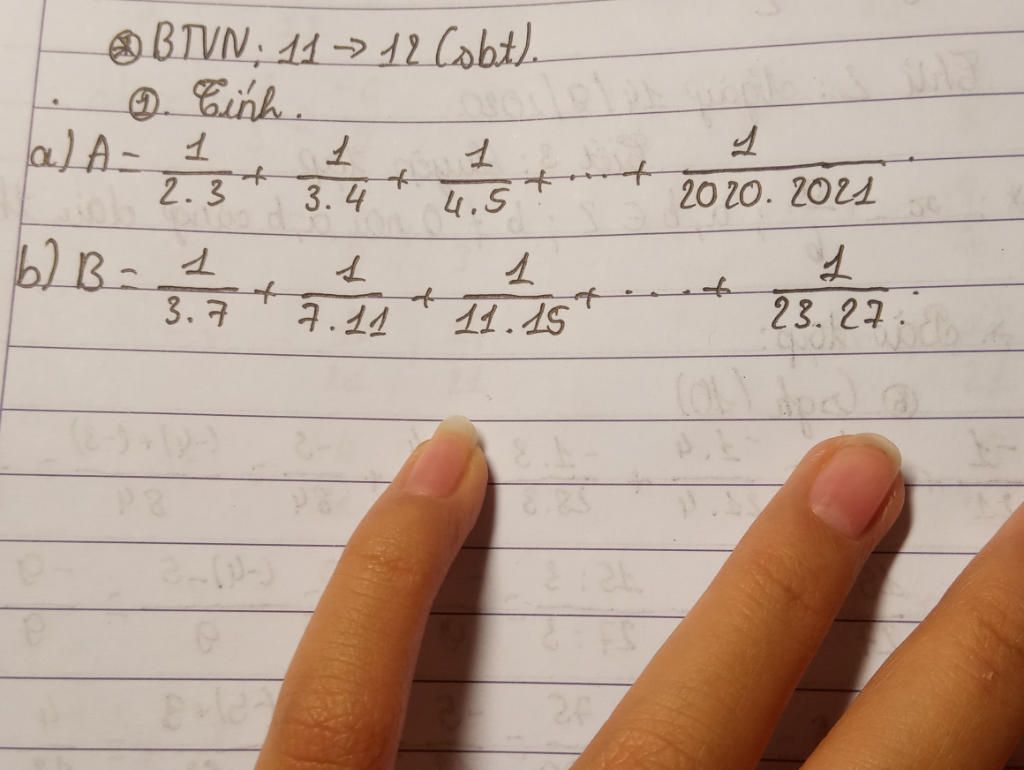 ⊛ BTVN: 11 → 12 (sbt).
①. Tính.
a) A = 1/2.3 + 1/3.4 + 1/4.5 + ... + 1/2020.2021.
b) B = 1/3.7 + 1/7.11 + 1/11.15 + .... + 1/23.27.